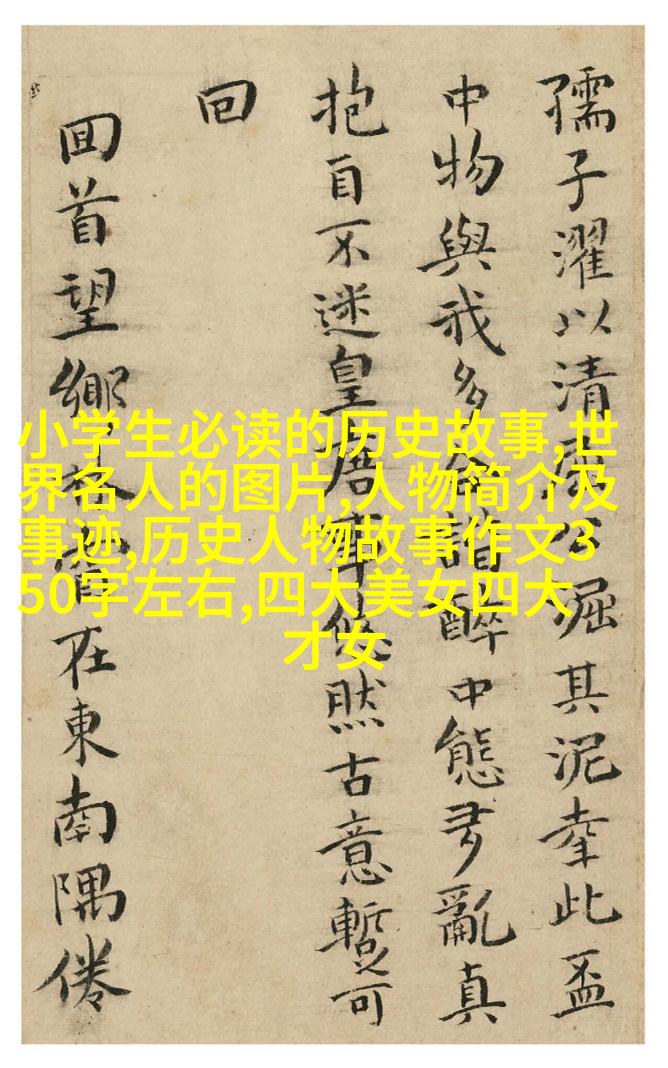 小学生必读的历史故事,世
界名人的图片,人物简介及
事迹,历史人物故事作文3
50字左右,四大美女四大
才女
孺子濯以清公掘其泥幸此盃
中物與我多諧醉中態多亂真
抱自不迷皇唐悠然古意暫可
回
回首望鄉林在東南隅倦